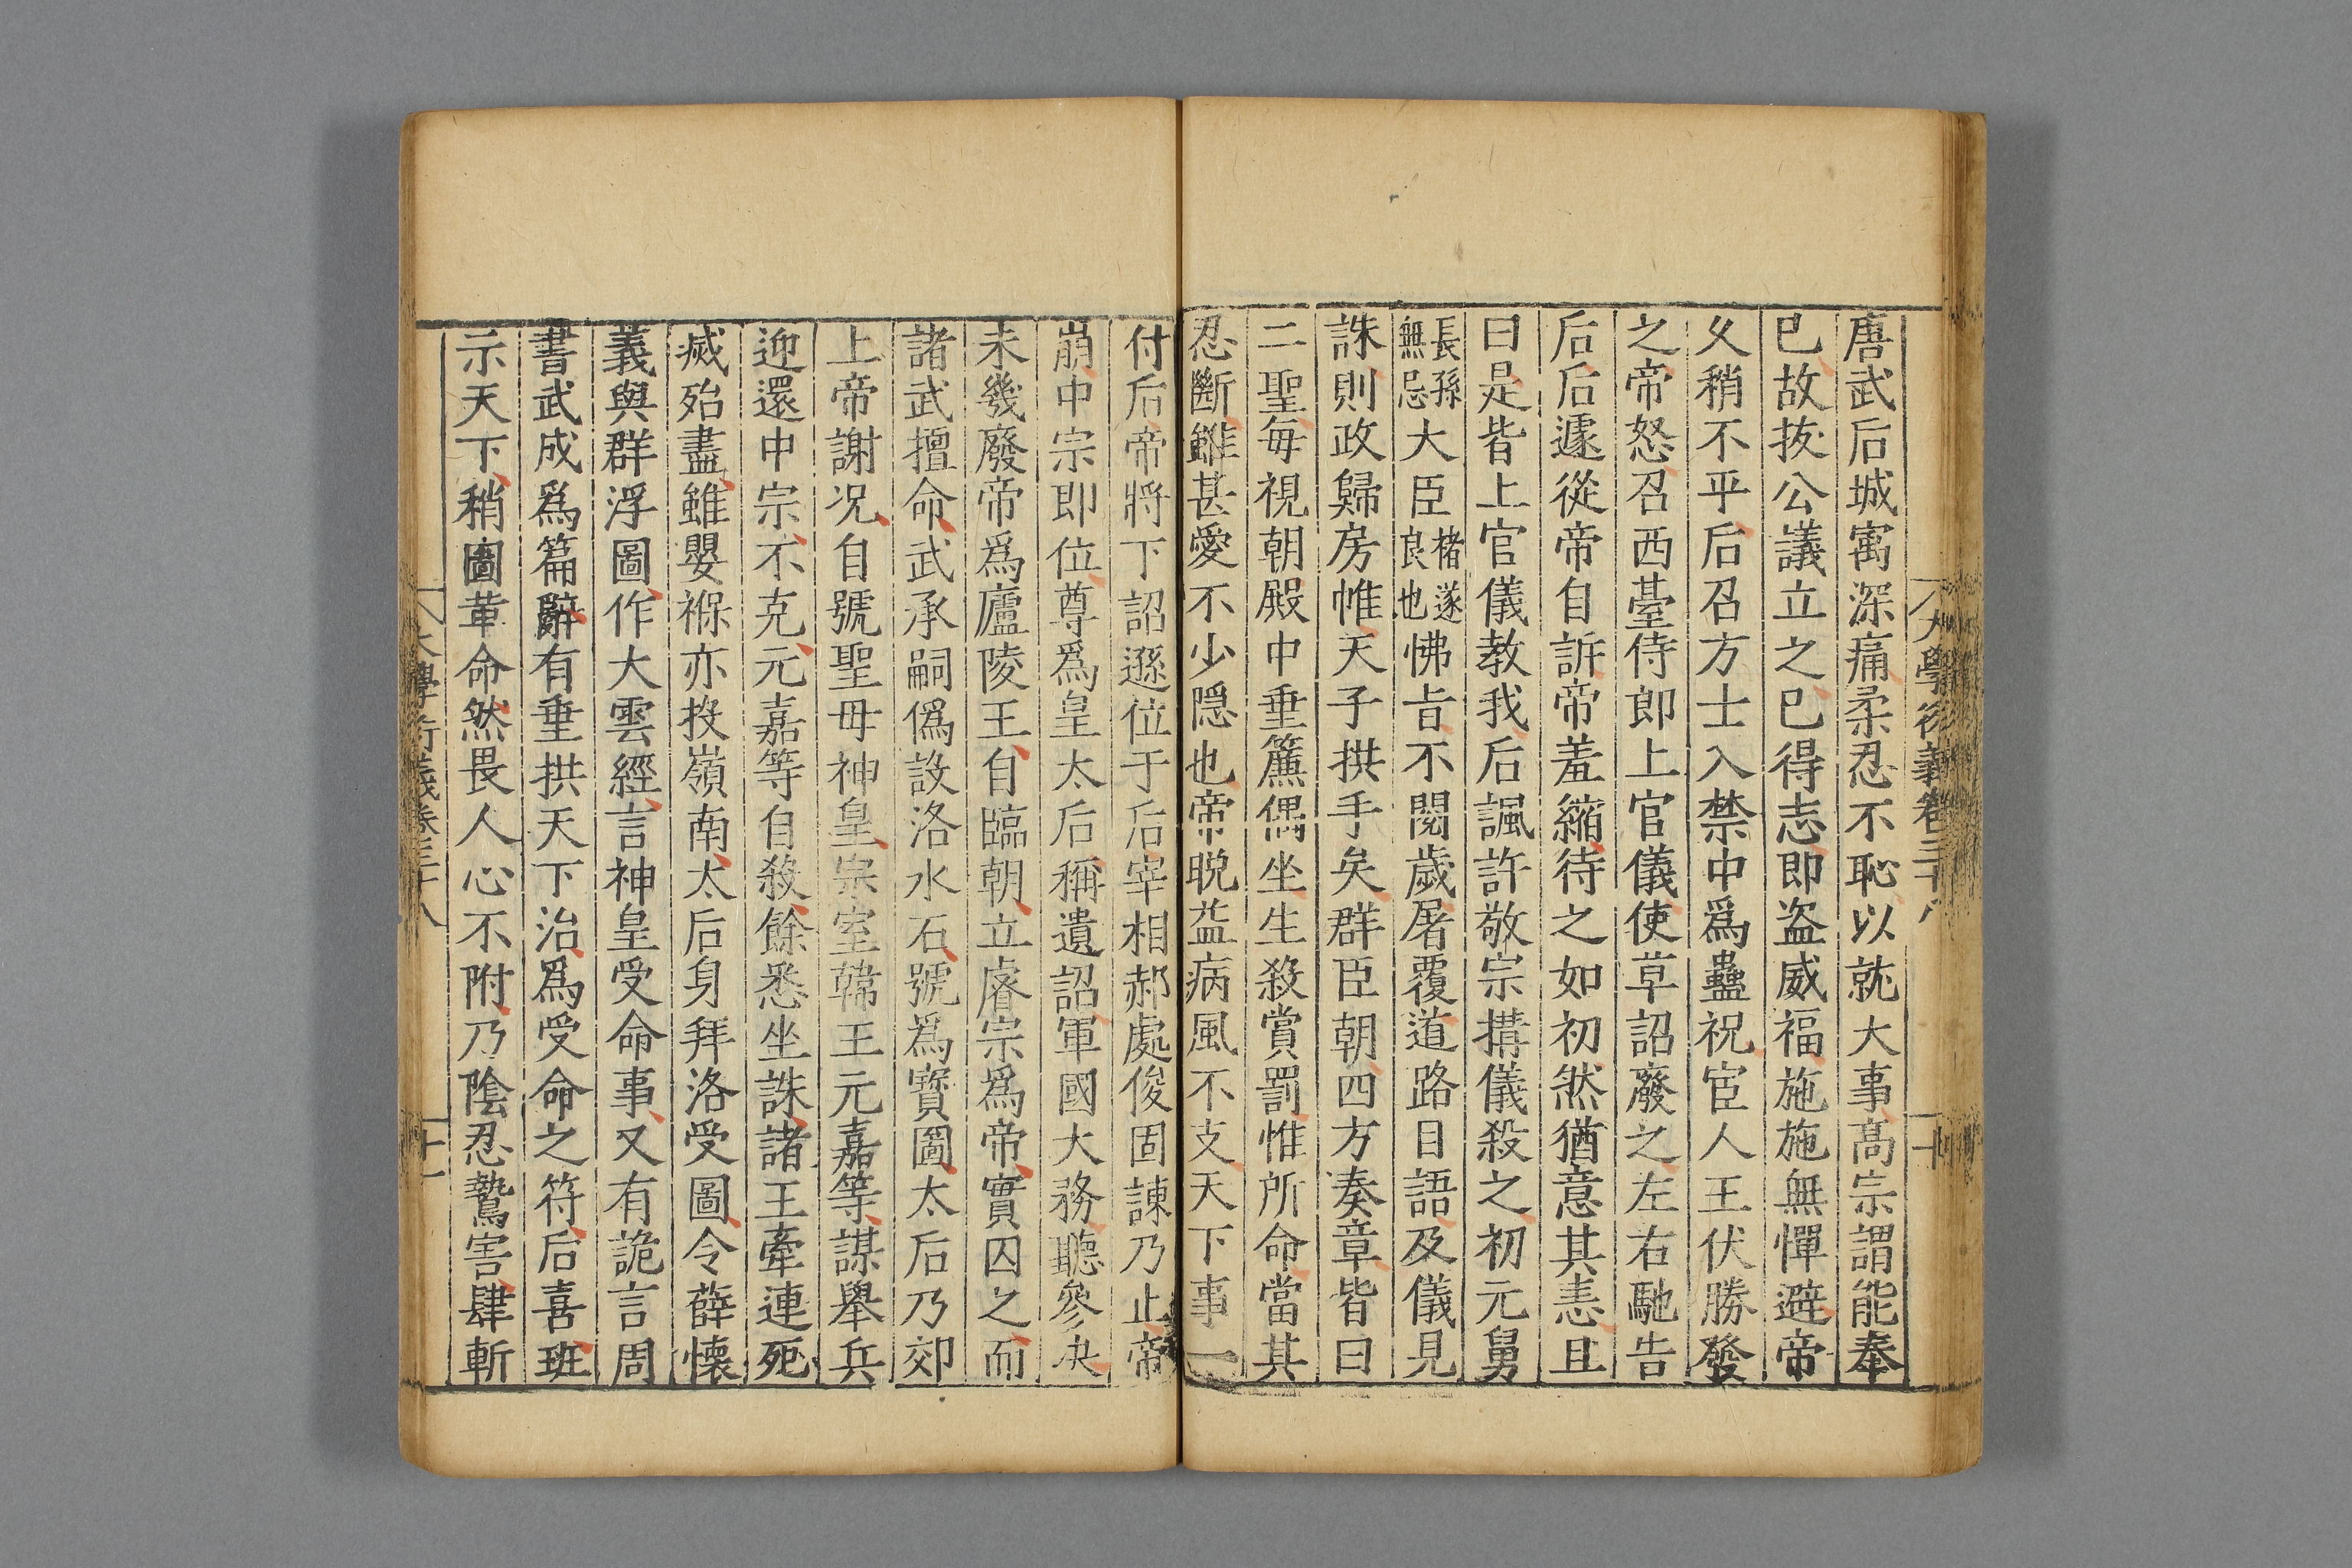 唐武后城㝢深痛柔忍不恥以就大事高宗謂能奉
已故抜公議立之已得志即盗威福施施無憚避帝
乆稍不平后召方士入禁中爲蠱祝宦人王伏勝發
之帝怒召西臺侍郎上官儀使草詔廢之左右馳告
后后遽從帝自訴帝羞縮待之如初然猶意其恚且
曰是皆上官儀教我后諷許敬宗搆儀殺之初元舅
長孫無忌大臣褚遂良也怫旨不閱歲屠覆道路目語及儀見
誅則政歸房帷天子拱手矣群臣朝四方奏章皆曰
二聖每視朝殿中垂簾偶坐生殺賞罰惟所命當其
忍斷雖甚愛不少隱也帝晚益病風不支天下事一
付后帝將下詔遜位于后宰相郝處俊固諌乃止帝
崩中宗即位尊爲皇太后稱遺詔軍國大務聽參决
未幾廢帝爲廬陵王自臨朝立睿宗爲帝實囚之而
諸武擅命武承嗣僞設洛水石號爲寳圖太后乃郊
上帝謝况自號聖母神皇宗室韓王元嘉等謀舉兵
迎還中宗不克元嘉等自殺餘悉坐誅諸王牽連死
烕殆盡雖嬰褓亦投嶺南太后身拜洛受圖令薛懐
義與群浮圖作大雲經言神皇受命事又有詭言周
書武成爲篇辭有垂拱天下治爲受命之符后喜班
示天下稍圖革命然畏人心不附乃隂忍鷙害肆斬
大學衍義卷三十八
十
大學衍義卷三十八
十一